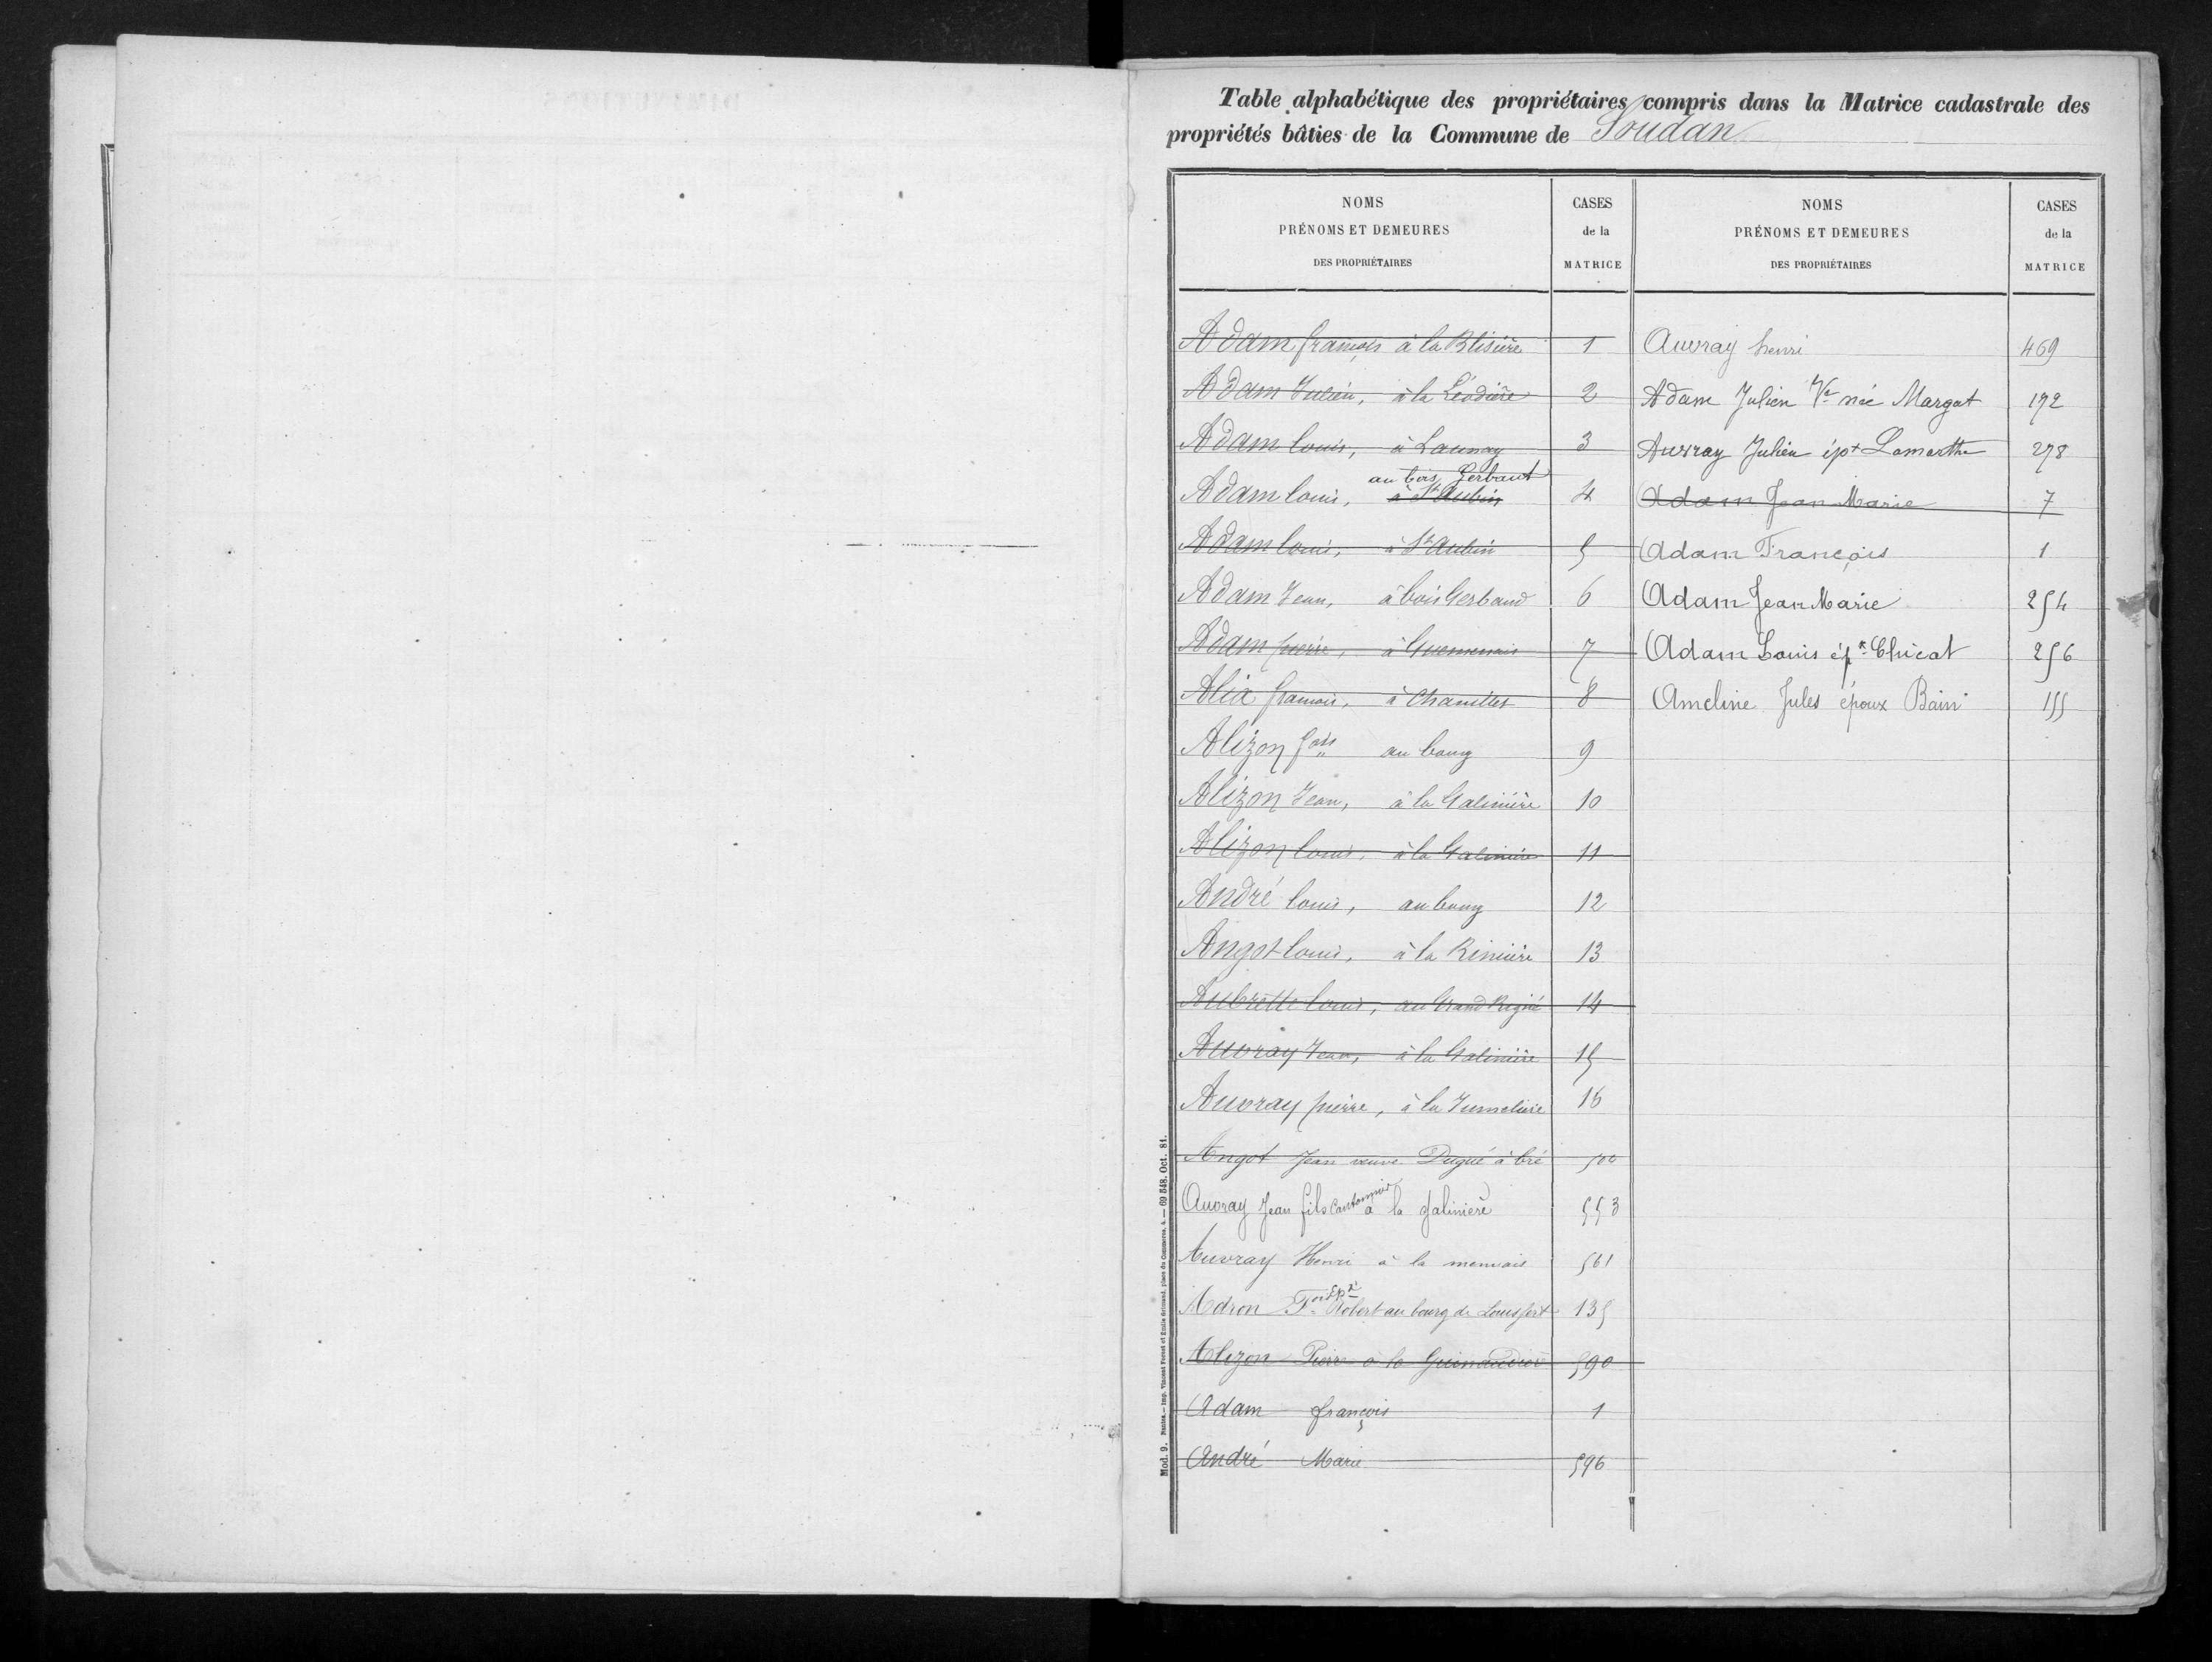 Table alphabétique des propriétaires compris dans la Matrice cadastrale des
propriétés bâties de la Commune de Soudan
NOMS
PRÉNOMS ET DEMEURES
DES PROPRIÉTAIRES
CASES
de la
MATRICE
NOMS
PRÉNOMS ET DEMEURES
DES PROPRIÉTAIRES
CASES
de la
MATRICE
Adam françois à la Blisière 1
Adam Julien, à la Léodière 2
Adam louis, à Launay 3
au bois Gerbaut
Adam louis, à St Aubin 4
Adam louis, à St Aubin 5
Adam Jean, à bois Gerbaud 6
Adam pierre, à 7
Alix françois, à Chanilles 8
Alizon fois au bourg 9
Alizon Jean, à la Galinière 10
Alizon louis, à la Galinière 11
André louis, au bourg 12
Angot louis, à la Rinière 13
Aubrette louis, au Grand Rigné 14
Auvray Jean, à la Galinière 15
Auvray pierre, à la Jumelière 16
Angot Jean veuve Dugué à bré 502
Auvray Jean fils cantonnier à la Galinière 553
Auvray Henri à la mennais 561
Adron Fois Epx Robert au bourg de Louisfert 135
Alizon Pierre à la 590
Adam françois 1
André Marie 596
Auvray henri 469
Adam Julien Ve née Margat 172
Auvray Julien épx Lamarthe 278
Adam Jean Marie 7
Adam François 1
Adam Jean Marie 254
Adam Louis épx Clucat 256
Ameline Jules époux Bain 155
Mod. 9. Nantes. — Imp. Vincent Forest et Émile Grimaud, place du Commerce, 4. — 69 548. Oct. 81.